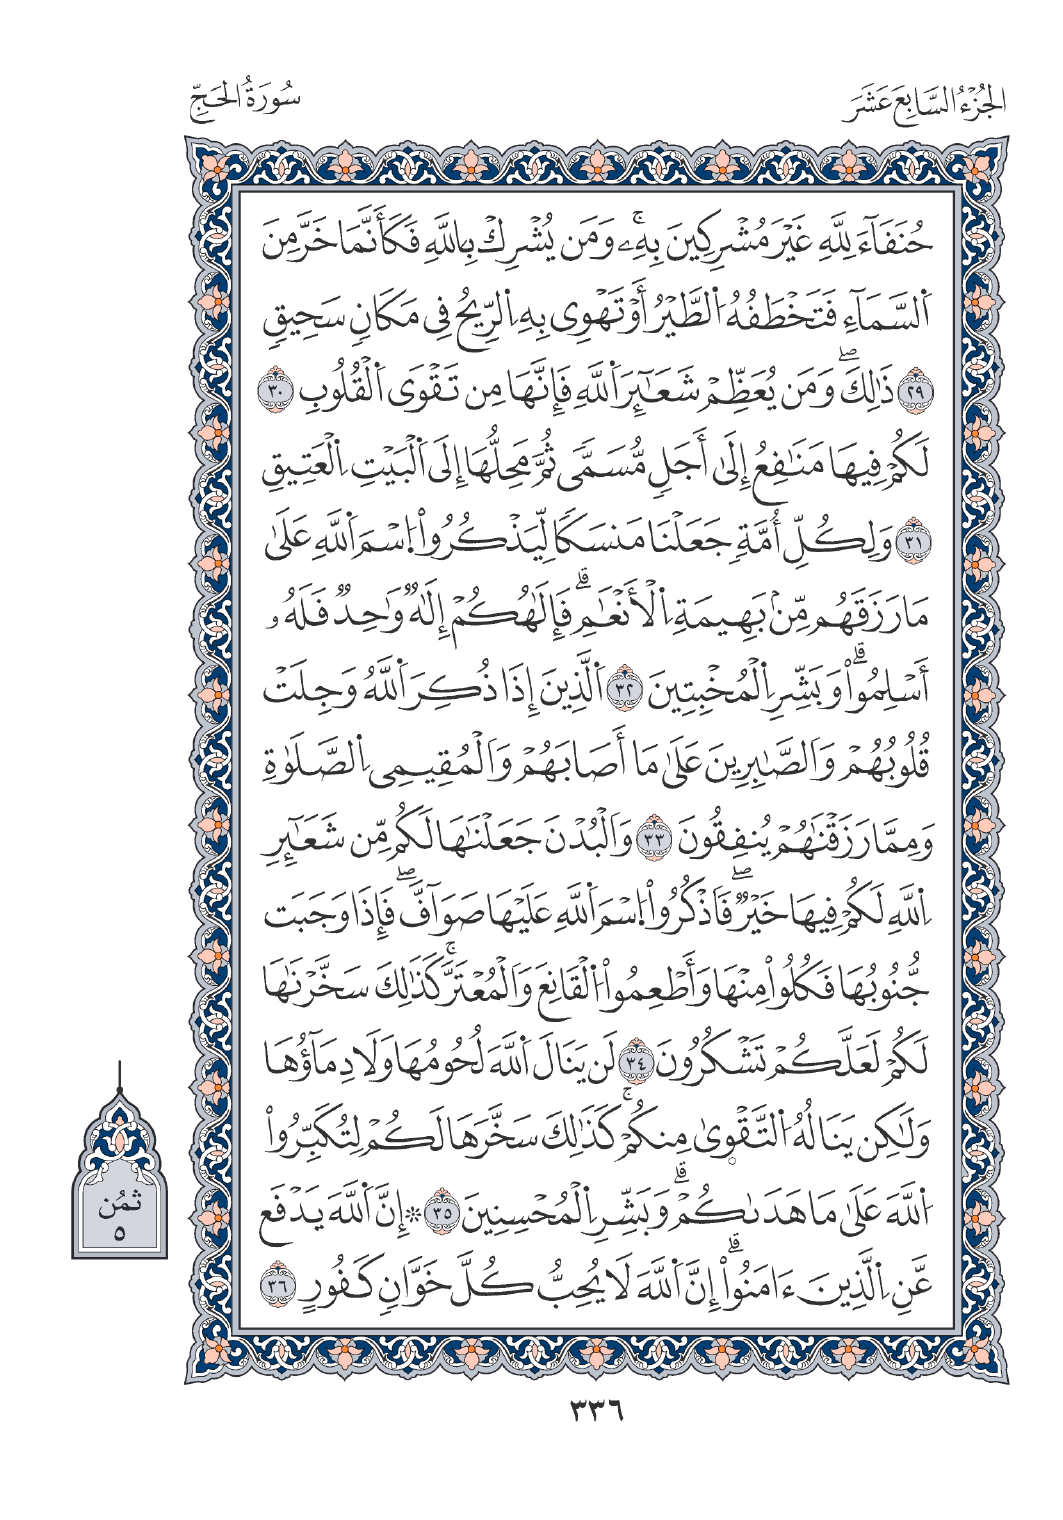 الجُزْءُ السَّابِعَ عَشَرَ
سُورَةُ الحَجِّ
حُنَفَآءَ لِلَّهِ غَيْرَ مُشْرِكِينَ بِهِۦۚ وَمَن يُشْرِكْ بِاللَّهِ فَكَأَنَّمَا خَرَّ مِنَ
اَ۬لسَّمَآءِ فَتَخْطَفُهُ اُ۬لطَّيْرُ أَوْ تَهْوِى بِهِ اِ۬لرِّيحُ فِى مَكَانٖ سَحِيقٖ
٢٩ ذَٰلِكَۖ وَمَن يُعَظِّمْ شَعَٰٓئِرَ اَ۬للَّهِ فَإِنَّهَا مِن تَقْوَى اَ۬لْقُلُوبِ ٣٠
لَكُمْ فِيهَا مَنَٰفِعُ إِلَىٰٓ أَجَلٖ مُّسَمّٗى ثُمَّ مَحِلُّهَا إِلَى اَ۬لْبَيْتِ اِ۬لْعَتِيقِ
٣١ وَلِكُلِّ أُمَّةٖ جَعَلْنَا مَنسَكٗا لِّيَذْكُرُواْ اُ۪سْمَ اَ۬للَّهِ عَلَىٰ
مَا رَزَقَهُم مِّنۢ بَهِيمَةِ اِ۬لْأَنْعَٰمِۗ فَإِلَٰهُكُمْ إِلَٰهٞ وَٰحِدٞ فَلَهُۥ
أَسْلِمُواْۗ وَبَشِّرِ اِ۬لْمُخْبِتِينَ ٣٢ اَ۬لَّذِينَ إِذَا ذُكِرَ اَ۬للَّهُ وَجِلَتْ
قُلُوبُهُمْ وَالصَّٰبِرِينَ عَلَىٰ مَا أَصَابَهُمْ وَالْمُقِيمِى اِ۬لصَّلَوٰةِ
وَمِمَّا رَزَقْنَٰهُمْ يُنفِقُونَ ٣٣ وَالْبُدْنَ جَعَلْنَٰهَا لَكُم مِّن شَعَٰٓئِرِ
اِ۬للَّهِ لَكُمْ فِيهَا خَيْرٞۖ فَاذْكُرُواْ اُ۪سْمَ اَ۬للَّهِ عَلَيْهَا صَوَآفَّۖ فَإِذَا وَجَبَت
جُّنُوبُهَا فَكُلُواْ مِنْهَا وَأَطْعِمُواْ اُ۬لْقَانِعَ وَالْمُعْتَرَّۚ كَذَٰلِكَ سَخَّرْنَٰهَا
لَكُمْ لَعَلَّكُمْ تَشْكُرُونَ ٣٤ لَن يَنَالَ اَ۬للَّهَ لُحُومُهَا وَلَا دِمَآؤُهَا
وَلَٰكِن يَنَالُهُ اُ۬لتَّقْو۪ىٰ مِنكُمْۚ كَذَٰلِكَ سَخَّرَهَا لَكُمْ لِتُكَبِّرُواْ
اُ۬للَّهَ عَلَىٰ مَا هَدَىٰكُمْۗ وَبَشِّرِ اِ۬لْمُحْسِنِينَ ٣٥ ۞ إِنَّ اَ۬للَّهَ يَدْفَع
عَّنِ اِ۬لَّذِينَ ءَامَنُواْۗ إِنَّ اَ۬للَّهَ لَا يُحِبُّ كُلَّ خَوَّانٖ كَفُورٍ ٣٦
ثُمُن
٥
٣٣٦